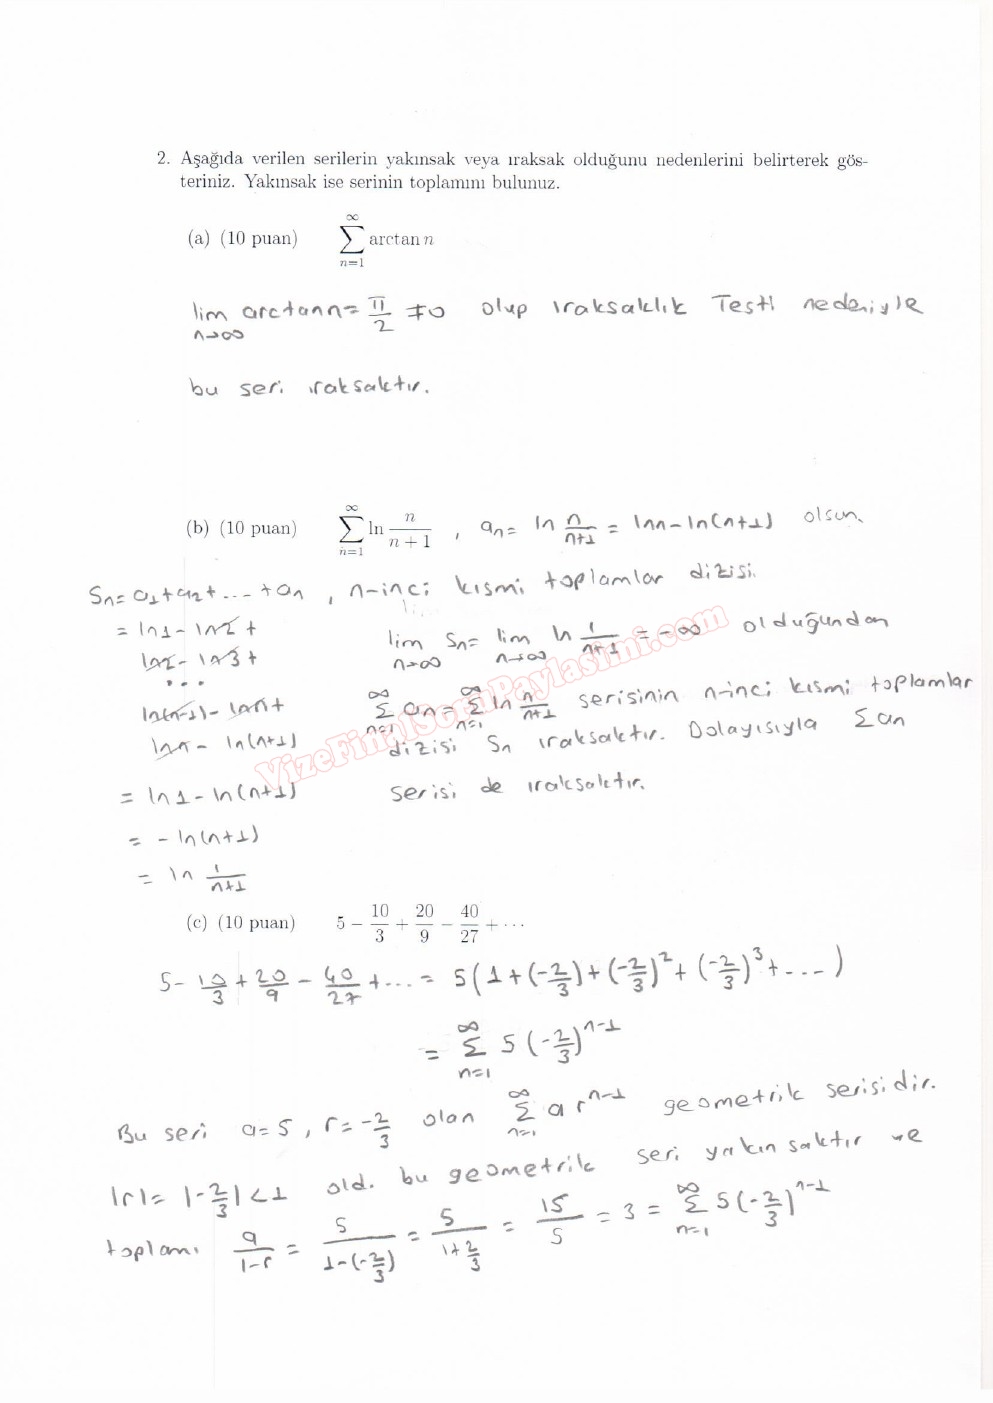 2. Aşağıda verilen serilerin yakınsak veya ıraksak olduğunu nedenlerini belirterek gös-
teriniz. Yakınsak ise serinin toplamını bulunuz.
(a) (10 puan) ∞∑n=1 arctan n
lim n→∞ arctann = π/2 ≠0 olup ıraksaklık Testi nedeniyle
bu seri ıraksaktır.
(b) (10 puan) ∞∑n=1 ln n/(n+1) , an= ln n/(n+1) = lnn-ln(n+1) olsun.
Sn= a1+a2+...+an , n-inci kısmi toplamlar dizisi.
= ln1 - ln2 +
ln2 - ln3 +
...
ln(n-1) - lnn +
lnn - ln(n+1)
= ln1 - ln(n+1)
= - ln(n+1)
= ln 1/(n+1)
lim n→∞ Sn= lim n→∞ ln 1/(n+1) = -∞ olduğundan
∞∑n=1 an= ∞∑n=1 ln n/(n+1) serisinin n-inci kısmi toplamlar
dizisi Sn ıraksaktır. Dolayısıyla ∑an
serisi de ıraksaktır.
VizeFinalSoruPaylasimi.com
(c) (10 puan) 5 - 10/3 + 20/9 - 40/27 + ···
5- 10/3 + 20/9 - 40/27 +... = 5(1+(-2/3)+(-2/3)²+(-2/3)³+...)
= ∞∑n=1 5(-2/3)^(n-1)
Bu seri a=5, r=-2/3 olan ∞∑n=1 a r^(n-1) geometrik serisidir.
|r|= |-2/3|<1 old. bu geometrik seri yakınsaktır ve
toplamı a/(1-r) = 5/(1-(-2/3)) = 5/(1+2/3) = 15/5 = 3 = ∞∑n=1 5(-2/3)^(n-1)